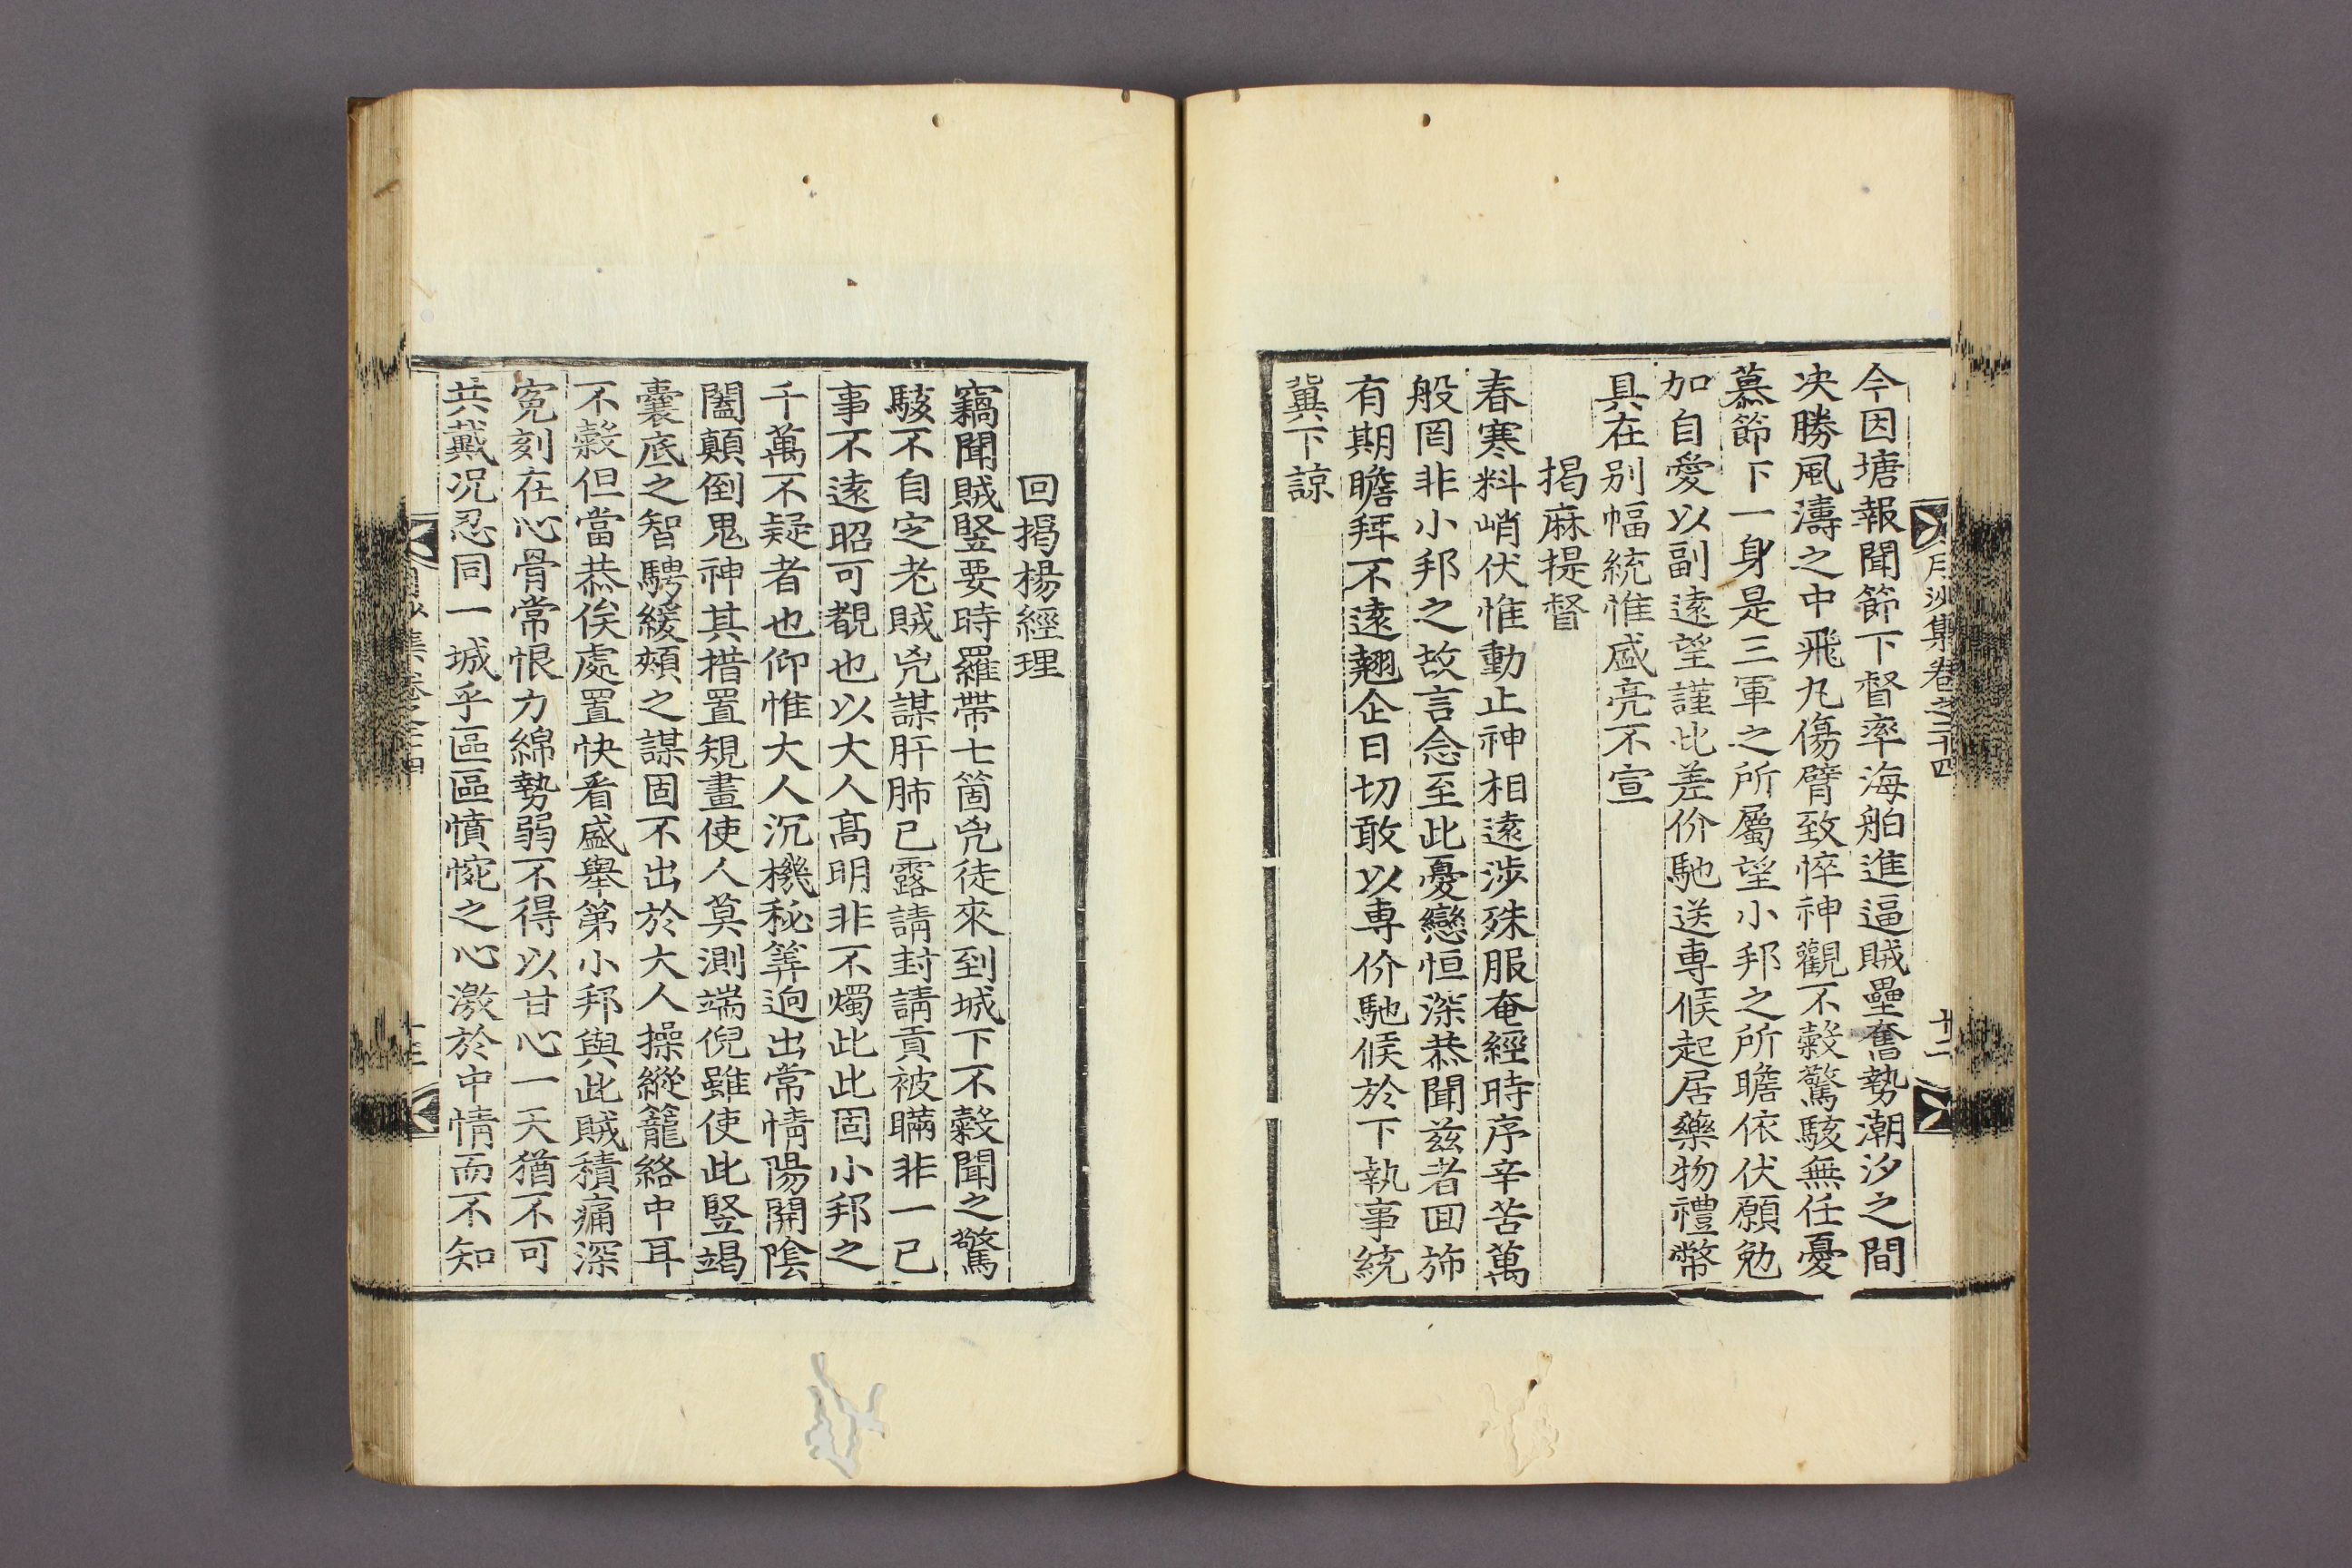 月沙集卷之二十四
十二
今因塘報聞節下督率海舶進逼賊壘奮勢潮汐之間
决勝風濤之中飛丸傷臂致悴神觀不穀驚駭無任憂
慕節下一身是三軍之所屬望小邦之所瞻依伏願勉
加自愛以副遠望謹此差价馳送専候起居藥物禮幣
具在别幅統惟盛亮不宣
揭麻提督
春寒料峭伏惟動止神相遠涉殊服奄經時序辛苦萬
般罔非小邦之故言念至此憂戀恒深恭聞兹者囬斾
有期瞻拜不遠翹企日切敢以専价馳候於下執事統
冀下諒
回揭楊經理
竊聞賊竪要時羅帶七箇兇徒來到城下不穀聞之驚
駭不自定老賊兇謀肝肺已露請封請貢被瞞非一已
事不遠昭可覩也以大人高明非不燭此此固小邦之
千萬不疑者也仰惟大人沉機秘筭逈出常情陽開陰
闔顛倒鬼神其措置規畫使人莫測端倪雖使此竪竭
囊底之智騁緩頰之謀固不出於大人操縱籠絡中耳
不穀但當恭俟處置快看盛舉第小邦與此賊積痛深
寃刻在心骨常恨力綿勢弱不得以甘心一天猶不可
共戴况忍同一城乎區區憤惋之心激於中情而不知
集卷之二十四
十三